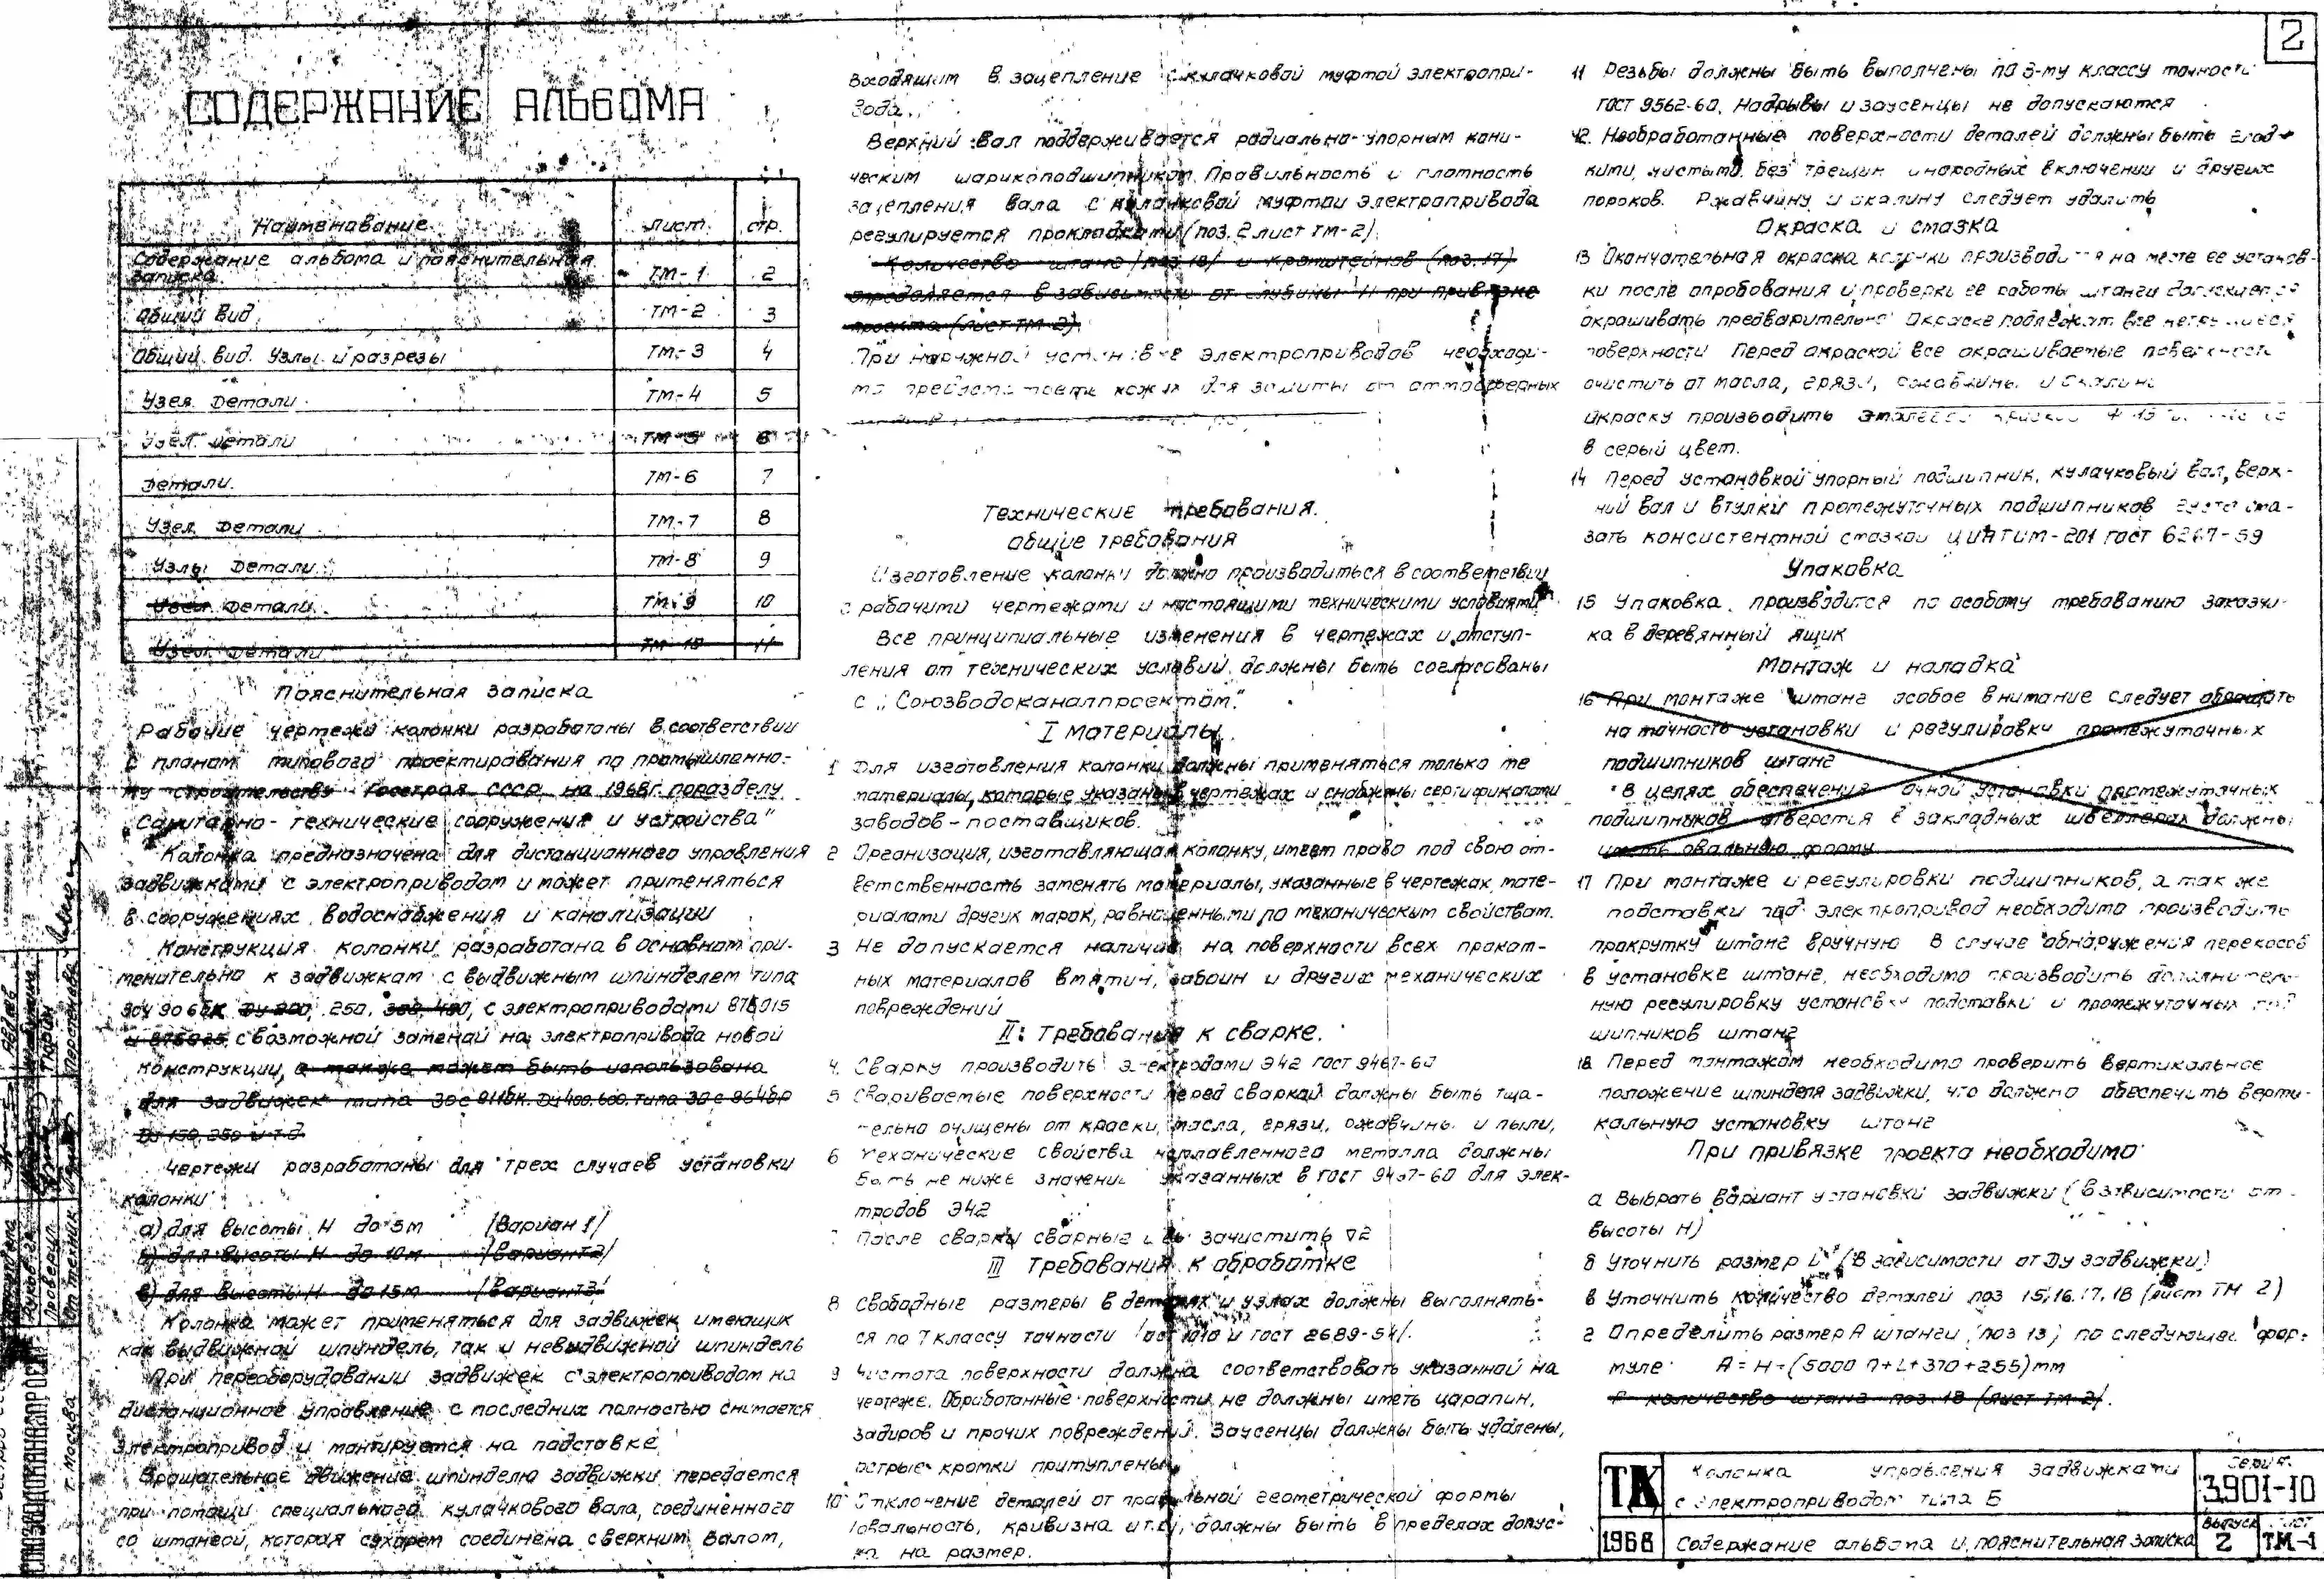 2
СОДЕРЖАНИЕ АЛЬБОМА
Наименование лист. стр.
Содержание альбома и пояснительная записка ТМ-1 2
Общий вид. ТМ-2 3
Общий вид. Узлы и разрезы ТМ-3 4
Узел. Детали. ТМ-4 5
Узел. Детали ТМ-5 6
Детали. ТМ-6 7
Узел. Детали. ТМ-7 8
Узлы. Детали. ТМ-8 9
Узел. Детали. ТМ-9 10
Узел. Детали ТМ-10 11
Пояснительная записка
Рабочие чертежи колонки разработаны в соответствии
с планом типового проектирования по промышленно-
му строительству Госстроя СССР на 1968г. по разделу
„Санитарно-технические сооружения и устройства"
Колонка предназначена для дистанционного управления
задвижками с электроприводом и может применяться
в сооружениях водоснабжения и канализации
Конструкция колонки разработана в основном при-
менительно к задвижкам с выдвижным шпинделем типа
Ду 200, 250, 300, 400, с электроприводами 87Б015
с возможной заменой на электропривода новой
конструкции, а также может быть использована
для задвижек типа Ду 400, 600, типа
Ду 150, 250 и т.д.
Чертежи разработаны для трех случаев установки
колонки
а) для высоты H до 5м /Вариант 1/
б) для высоты H до 10м /Вариант 2/
в) для высоты H до 15м /Вариант 3/
Колонка может применяться для задвижек, имеющих
как выдвижной шпиндель, так и невыдвижной шпиндель
При переоборудовании задвижек с электроприводом на
дистанционное управление с последних полностью снимается
электропривод и монтируется на подставке
Вращательное движение шпинделю задвижки передается
при помощи специального кулачкового вала, соединенного
со штангой, которая сухарем соединена с верхним валом,
входящим в зацепление с кулачковой муфтой электропри-
вода.
Верхний вал поддерживается радиально-упорным кони-
ческим шарикоподшипником. Правильность и плотность
зацепления вала с кулачковой муфтой электропривода
регулируется прокладками (поз. 2 лист ТМ-2).
Количество штанг /поз. 18/ и кронштейнов (поз. 17)
определяется в зависимости от глубины H при привязке
проекта (лист ТМ-2).
При наружной установке электроприводов необходи-
мо предусмотреть кожух для защиты от атмосферных
Технические требования.
Общие требования
Изготовление колонки должно производиться в соответствии
с рабочими чертежами и настоящими техническими условиями.
Все принципиальные изменения в чертежах и отступ-
ления от технических условий должны быть согласованы
с „Союзводоканалпроектом".
I Материалы.
1 Для изготовления колонки должны применяться только те
материалы, которые указаны в чертежах и снабжены сертификатами
заводов-поставщиков.
2 Организация, изготавливающая колонку, имеет право под свою от-
ветственность заменять материалы, указанные в чертежах, мате-
риалами других марок, равноценными по механическим свойствам.
3 Не допускается наличие на поверхности всех прокат-
ных материалов вмятин, забоин и других механических
повреждений
II. Требования к сварке.
4. Сварку производить электродами Э42 ГОСТ 9467-60
5 Свариваемые поверхности перед сваркой должны быть тща-
тельно очищены от краски, масла, грязи, ржавчины и пыли,
6 Механические свойства наплавленного металла должны
быть не ниже значений указанных в ГОСТ 9467-60 для элек-
тродов Э42
7 После сварки сварные швы зачистить ▽2
III Требования к обработке
8 Свободные размеры в деталях и узлах должны выполнять-
ся по 7 классу точности /ОСТ 1010 и ГОСТ 2689-54/.
9 Чистота поверхности должна соответствовать указанной на
чертеже. Обработанные поверхности не должны иметь царапин,
задиров и прочих повреждений. Заусенцы должны быть удалены,
острые кромки притуплены.
10 Отклонение деталей от правильной геометрической формы
/овальность, кривизна и т.д./ должны быть в пределах допус-
ка на размер.
11 Резьбы должны быть выполнены по 3-му классу точности
ГОСТ 9562-60. Надрывы и заусенцы не допускаются
12. Необработанные поверхности деталей должны быть глад-
кими, чистыми, без трещин, инородных включений и других
пороков. Ржавчину и окалину следует удалить
Окраска и смазка
13 Окончательная окраска колонки производится на месте ее установ-
ки после опробования и проверки ее работы штанги допускается
окрашивать предварительно Окраске подлежат все нетрущиеся
поверхности Перед окраской все окрашиваемые поверхности
очистить от масла, грязи, ржавчины и окалины
Окраску производить эмалевой краской
в серый цвет.
14 Перед установкой упорный подшипник, кулачковый вал, верх-
ний вал и втулки промежуточных подшипников густо сма-
зать консистентной смазкой ЦИАТИМ-201 ГОСТ 6267-59
Упаковка
15 Упаковка производится по особому требованию заказчи-
ка в деревянный ящик
Монтаж и наладка
16 При монтаже штанг особое внимание следует обращать
на точность установки и регулировки промежуточных
подшипников штанг
В целях обеспечения точной установки промежуточных
подшипников отверстия в закладных швеллерах должны
иметь овальную форму
17 При монтаже и регулировки подшипников, а так же
подставки под электропривод необходимо производить
прокрутку штанг вручную В случае обнаружения перекосов
в установке штанг, необходимо производить дополнитель-
ную регулировку установки подставки и промежуточных под-
шипников штанг
18 Перед монтажом необходимо проверить вертикальное
положение шпинделя задвижки, что должно обеспечить верти-
кальную установку штанг
При привязке проекта необходимо
а Выбрать вариант установки задвижки (в зависимости от
высоты H)
б Уточнить размер L (в зависимости от Ду задвижки)
в Уточнить количество деталей поз 15, 16, 17, 18 (лист ТМ 2)
г Определить размер А штанги (поз 13) по следующей фор-
муле A = H-(5000 n+L+370+255)мм
и количество штанг поз. 18 (лист ТМ-2).
ТК
Колонка управления задвижками
с электроприводом типа Б
Серия
3.901-10
1968
Содержание альбома и пояснительная записка
Выпуск
2
Лист
ТМ-1
СОЮЗВОДОКАНАЛПРОЕКТ
г. Москва
Проверил
Ст техник